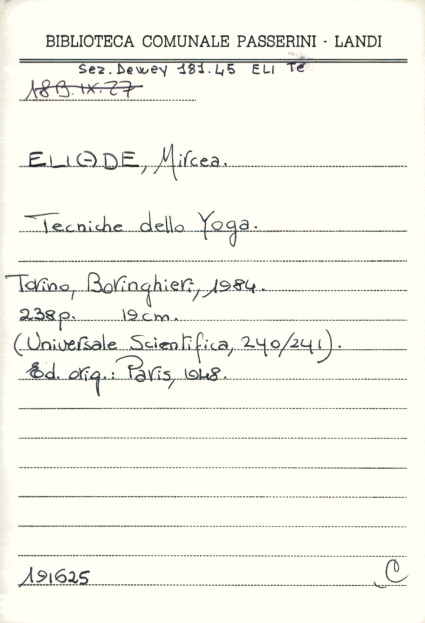 BIBLIOTECA COMUNALE PASSERINI - LANDI
Sez. Dewey 181.45 ELI Te
18B.IX.27
ELIADE, Mircea.
Tecniche dello Yoga.
Torino, Boringhieri, 1984.
238p. 19cm.
(Universale Scientifica, 240/241).
Ed. orig.: Paris, 1948.
191625 C